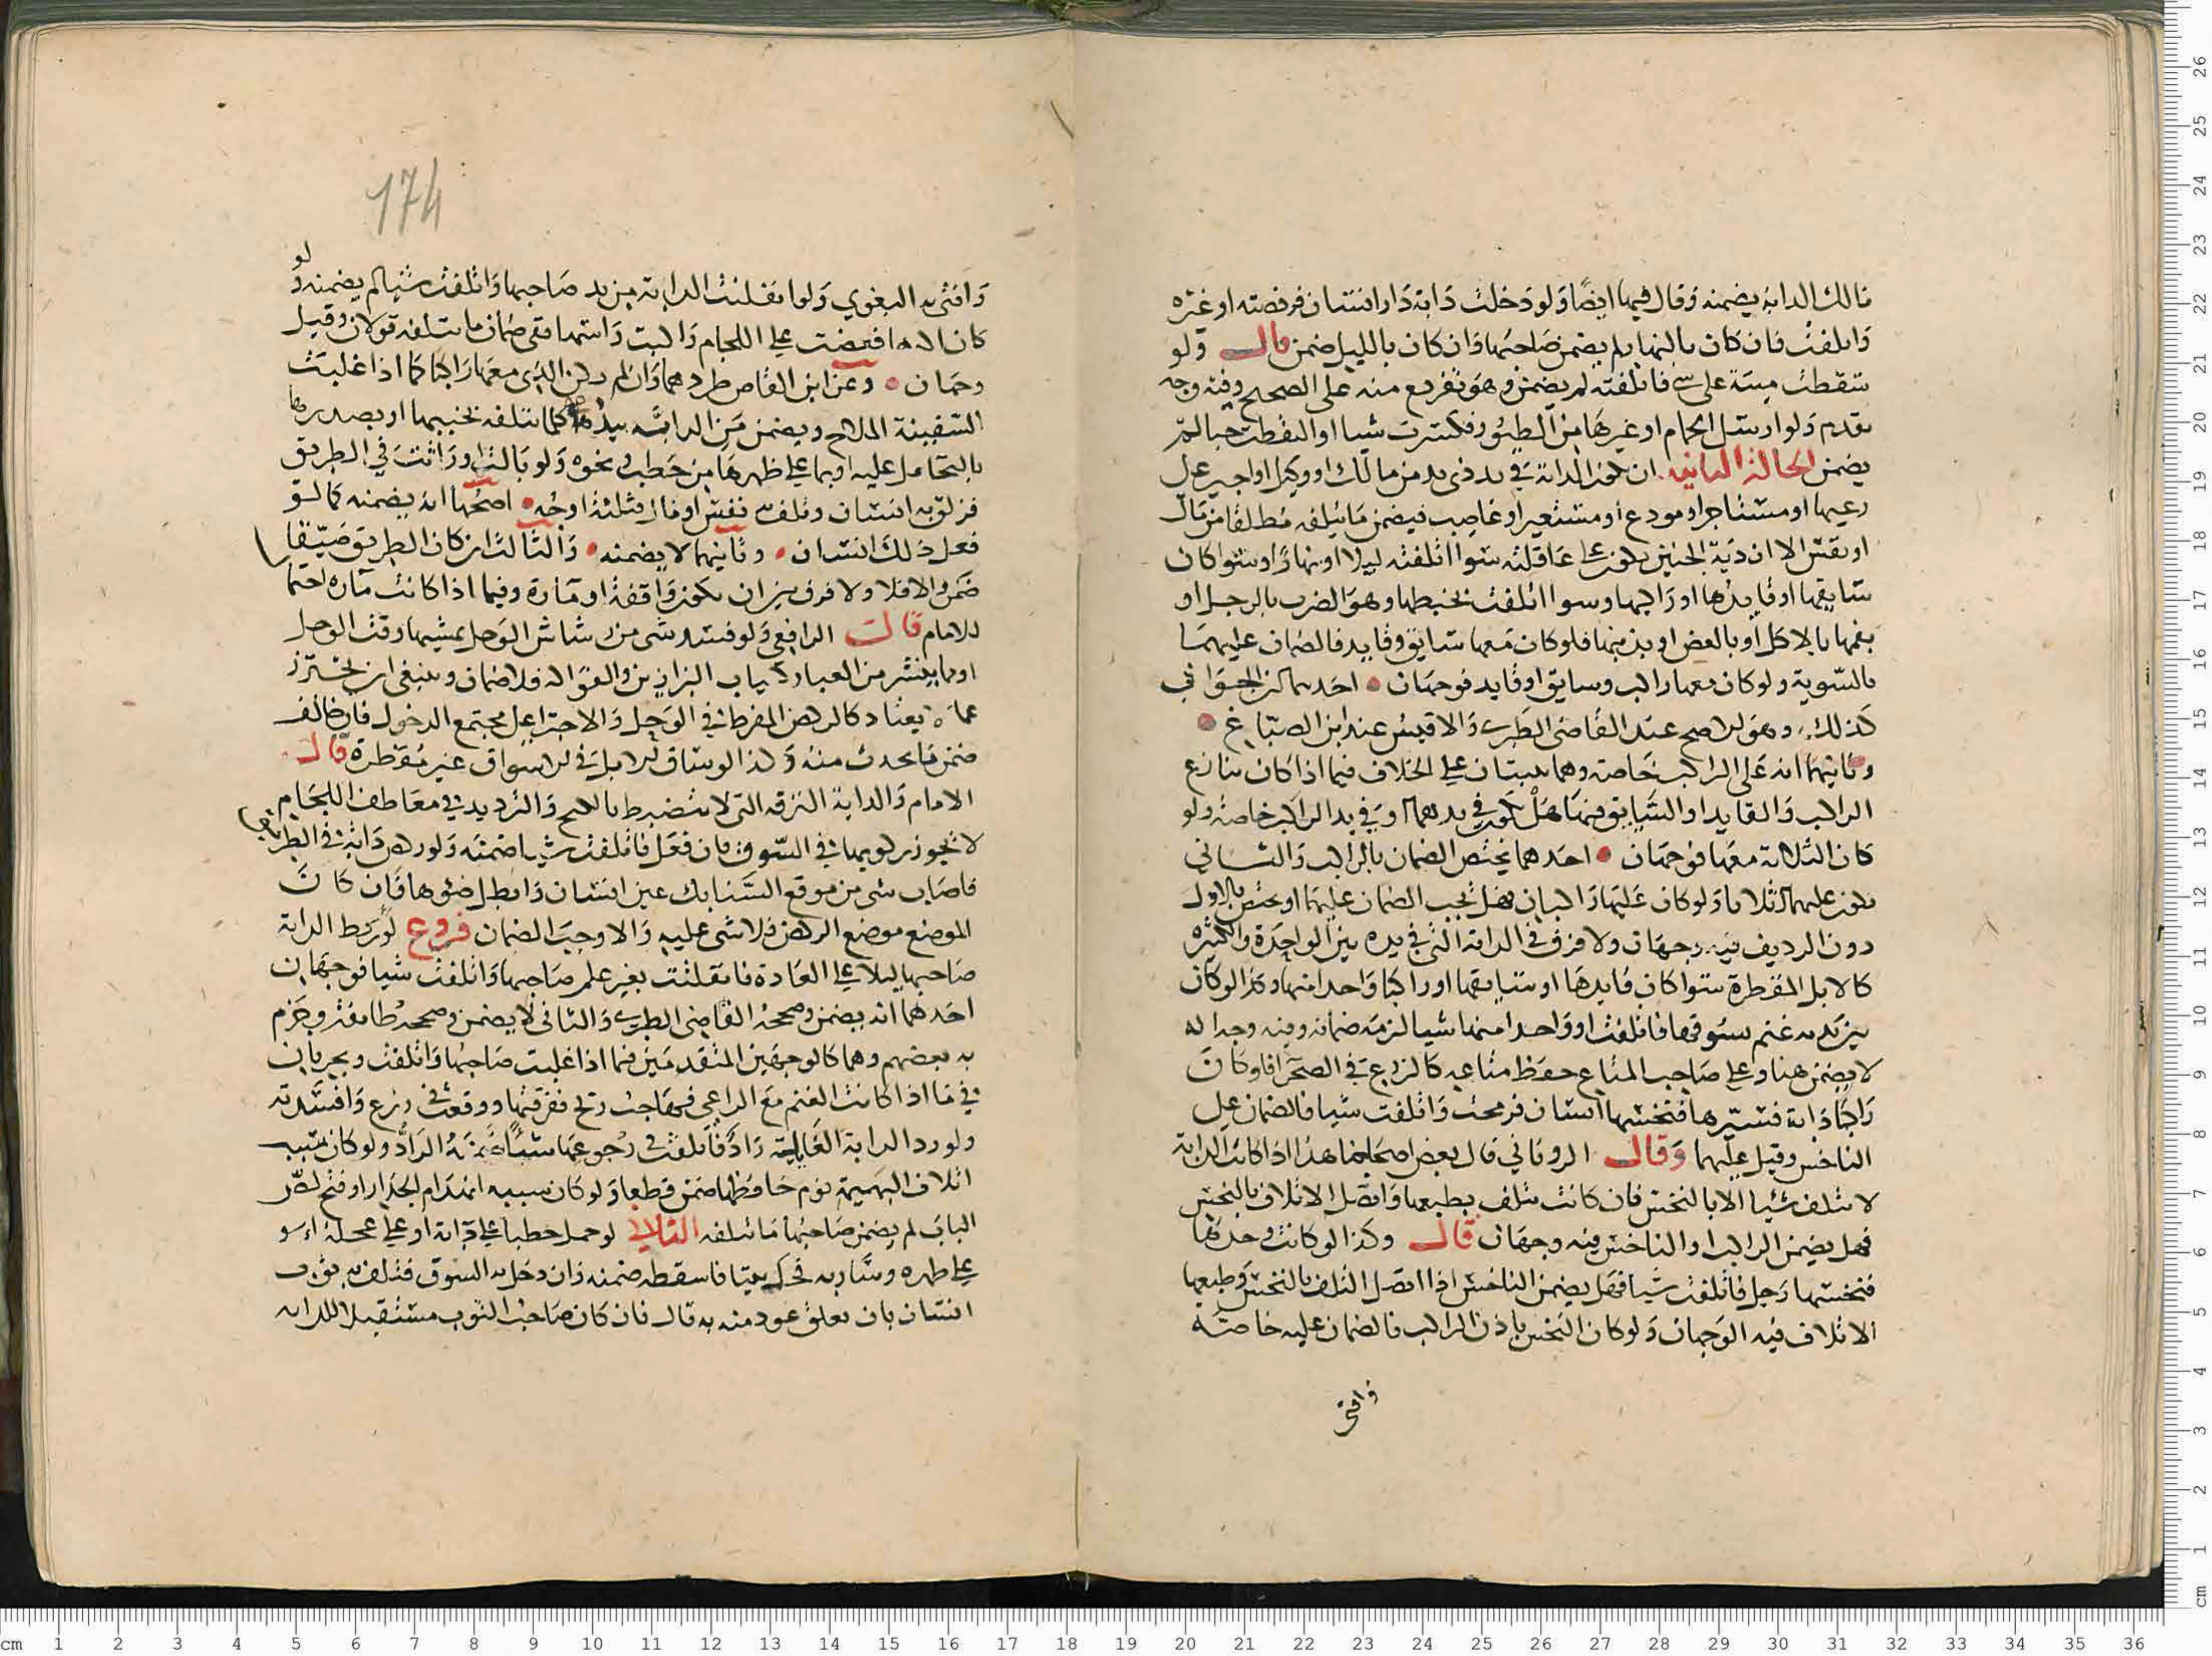 مالك الدابة يضمنه وقال فيها ايضا ولو دخلت دابة دار انسان فرفصته او غيره
واتلفت فان كان بالنهار لم يضمن صاحبها وان كان بالليل ضمن قال ولو
سقطت ميتة على شي فاتلفته لم يضمن وهو تفريع منه على الصحيح وفيه وجه
تقدم ولو ارسل الحمام او غيرها من الطيور فكسرت شيا او التقطت حبا لم
يضمن الحالة الثانية ان تكون الدابة في يد ذي يد من مالك او وكيل او اجير على
رعيها او مستاجر او مودع أو مستعير او غاصب فيضمن ما يتلفه مطلقا من مال
او نفس الا ان دية الجنين تكون على عاقلته سوا اتلفته ليلا او نهارا وسوا كان
سايقها او قايدها او راكبها وسوا اتلفت بخبطها وهو الضرب بالرجل او
بفمها بالاكل أو بالعض او بذنبها فلو كان معها سايق وقايد فالضمان عليهما
بالسوية ولو كان معها راكب وسايق او قايد فوجهان احدهما ان الجواب
كذلك وهو الاصح عند القاضي الطبري والاقيس عند ابن الصباغ
وثانيهما انه على الراكب خاصة وهما مبنيان على الخلاف فيما اذا كان تنازع
الراكب والقايد او السايق فيها هل تكون في يدهما او في يد الراكب خاصة ولو
كان الثلاثة معها فوجهان احدهما يختص الضمان بالراكب والثاني
يكون عليهم اثلاثا ولو كان عليها راكبان فهل يجب الضمان عليهما او يختص بالاول
دون الرديف فيه وجهان ولا فرق في الدابة التي في يده بين الواحدة والكثيره
كالابل المقطرة سوا كان قايدها او سايقها او راكبا واحدا منها وكذا لو كان
بين يديه غنم يسوقها فاتلفت او واحدا منها شيا لزمه ضمانه وفيه وجه انه
لا يضمن هنا وعلى صاحب المتاع حفظ متاعه كالزرع في الصحرا فلو كان
راكبا دابة فسيرها فنخسها انسان فرمحت واتلفت شيا فالضمان على
الناخس وقيل عليهما وقال الروياني قال بعض اصحابنا هذا اذا كانت الدابة
لا تتلف شيا الا بالنخس فان كانت تتلف بطبعها واتصل الاتلاف بالنخس
فهل يضمن الراكب او الناخس فيه وجهان قال وكذا لو كانت وحدها
فنخسها رجل فاتلفت شيا فهل يضمن الناخس اذا اتصل التلف بالنخس وطبعها
الاتلاف فيه الوجهان ولو كان النخس باذن الراكب فالضمان عليه خاصة
وافتى
174
وافتى به البغوي ولو انفلتت الدابة من يد صاحبها واتلفت شيا لم يضمنه ولو
كان راكبها فعضت على اللجام وركبت راسها ففي ضمان ما تتلفه قولان وقيل
وجهان وعن ابن القاص طردهما وان لم يكن الذي معها راكبا كما اذا غلبت
السفينة الملاح ويضمن من الدابة بيده كلما تتلفه بخبيها او بصدرها
بالتحامل عليه او بما على ظهرها من حطب ونحوه ولو بالت او راثت في الطريق
فزلق به انسان وتلف نفس او مال فثلثة اوجه اصحها انه يضمنه كما لو
فعل ذلك انسان وثانيها لا يضمنه والثالث ان كان الطريق ضيقا
ضمن والا فلا ولا فرق بين ان تكون واقفة او مارة وفيما اذا كانت مارة احتمال
للامام قال الرافعي ولو فسد شي من رشاش الوحل بمشيها وقت الوحل
او ما ينتشر من الغبار ثياب البزازين والفواكه فلا ضمان وينبغي ان يحترز
عما لا يعتاد كالركض المفرط في الوحل والاجتراء على مجتمع الدخول فان خالف
ضمن ما يحدث منه وكذا لو ساق الابل في الاسواق غير مقطرة قال
الامام والدابة النزقة التي لا تنضبط بالكبح والترديد في معاطف اللجام
لا يجوز ركوبها في السوق فان فعل فاتلفت شيا ضمنه ولو ركض دابة في الطريق
فاصاب شي من موقع السنابك عين انسان وابطل ضوها فان كان
الموضع موضع الركض فلا شي عليه والا وجب الضمان فروع لو ربط الدابة
صاحبها ليلا على العادة فانفلتت بغير علم صاحبها واتلفت شيا فوجهان
احدهما انه يضمن وصححه القاضي الطبري والثاني لا يضمن وصححه طايفة وجزم
به بعضهم وهما كالوجهين المتقدمين فيما اذا غلبت صاحبها واتلفت ويجريان
في ما اذا كانت الغنم مع الراعي فهاجت ريح ففرقتها ووقعت في زرع وافسدته
ولو رد الدابة الغالبة راد فاتلفت في رجوعها شيا ضمنه الراد ولو كان سبب
اتلاف البهيمة نوم حافظها ضمن قطعا ولو كان سببه انهدام الجدار او فتح لص
الباب لم يضمن صاحبها ما تتلفه الثلاث لو حمل حطبا على دابة او على عجلة او
على ظهره وسار به فحك بيتا فاسقطه ضمنه وان دخل به السوق فتلف به ثوب
انسان بان تعلق عود منه به قال فان كان صاحب الثوب مستقبلا للدابة